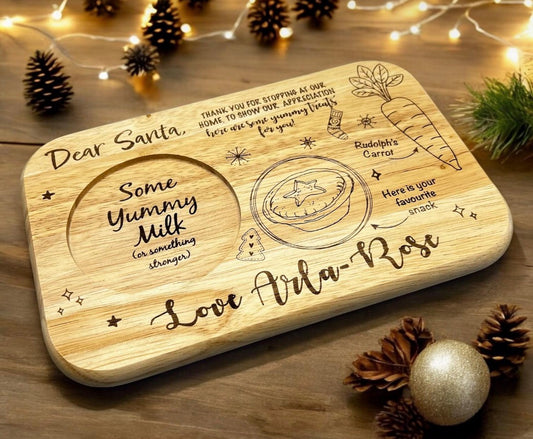 Dear Santa,
THANK YOU FOR STOPPING AT OUR
HOME, TO SHOW OUR APPRECIATION
here are some yummy treats
for you!
Some
Yummy
Milk
(or something
stronger)
Rudolph's
Carrot
Here is your
favourite
snack
Love Arla-Rose